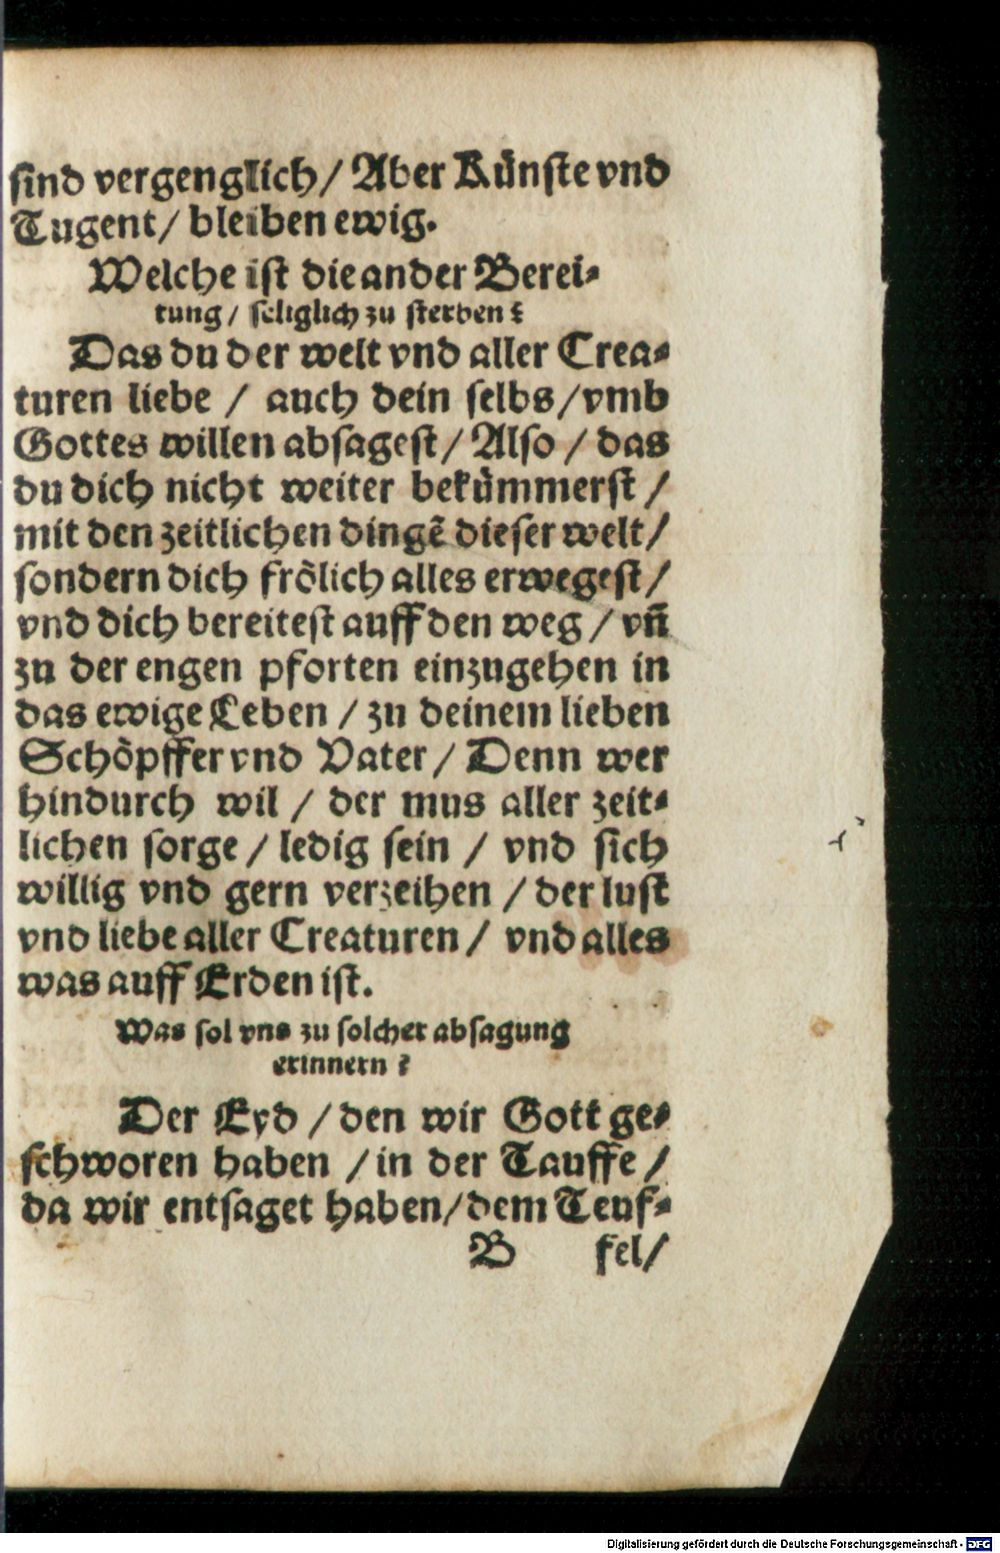 sind vergenglich / Aber Künste vnd
Tugent / bleiben ewig.
Welche ist die ander Berei-
tung / seliglich zu sterben?
Das du der welt vnd aller Crea-
turen liebe / auch dein selbs / vmb
Gottes willen absagest / Also / das
du dich nicht weiter bekümmerst /
mit den zeitlichen dingẽ dieser welt /
sondern dich frölich alles erwegest /
vnd dich bereitest auff den weg / vñ
zu der engen pforten einzugehen in
das ewige Leben / zu deinem lieben
Schöpffer vnd Vater / Denn wer
hindurch wil / der mus aller zeit-
lichen sorge / ledig sein / vnd sich
willig vnd gern verzeihen / der lust
vnd liebe aller Creaturen / vnd alles
was auff Erden ist.
Was sol vns zu solcher absagung
erinnern?
Der Eyd / den wir Gott ge-
schworen haben / in der Tauffe /
da wir entsaget haben / dem Teuf-
B fel /
Digitalisierung gefördert durch die Deutsche Forschungsgemeinschaft - DFG